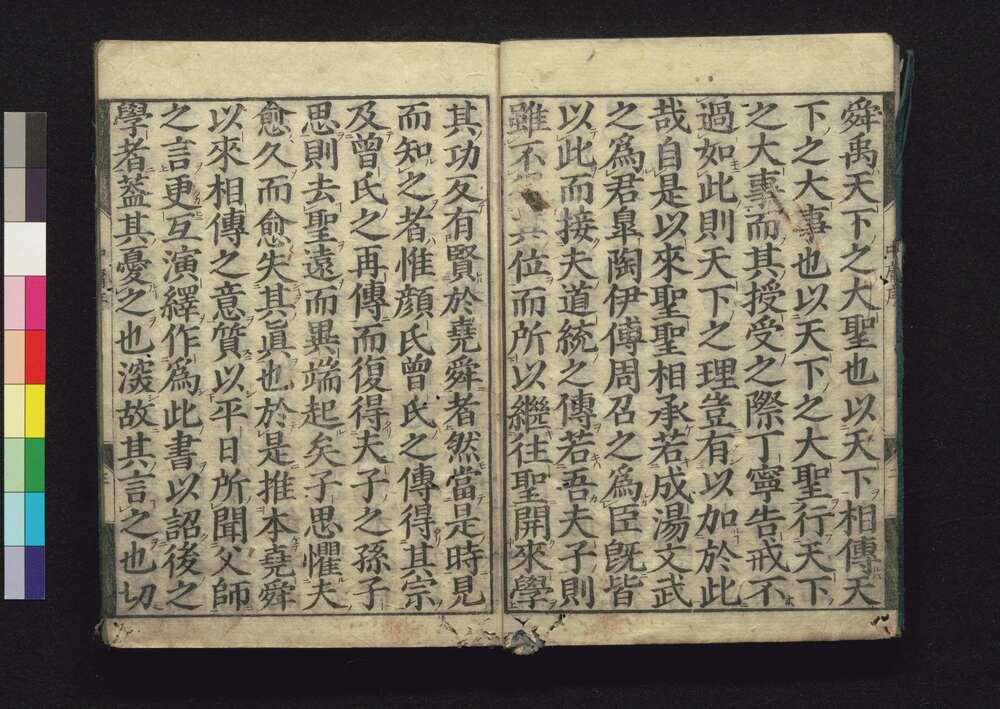 舜禹天下之大聖也以天下相傳天
下之大事也以天下之大聖行天下
之大事而其授受之際丁寧告戒不
過如此則天下之理豈有以加於此
哉自是以來聖聖相承若成湯文武
之爲君皐陶伊傅周召之爲臣既皆
以此而接夫道統之傳若吾夫子則
雖不其位而所以繼往聖開來學
其功反有賢於堯舜者然當是時見
而知之者惟顔氏曾氏之傳得其宗
及曾氏之再傳而復得夫子之孫子
思則去聖遠而異端起矣子思懼夫
愈久而愈失其眞也於是推本堯舜
以來相傳之意質以平日所聞父師
之言更互演繹作爲此書以詔後之
學者蓋其憂之也深故其言之也切